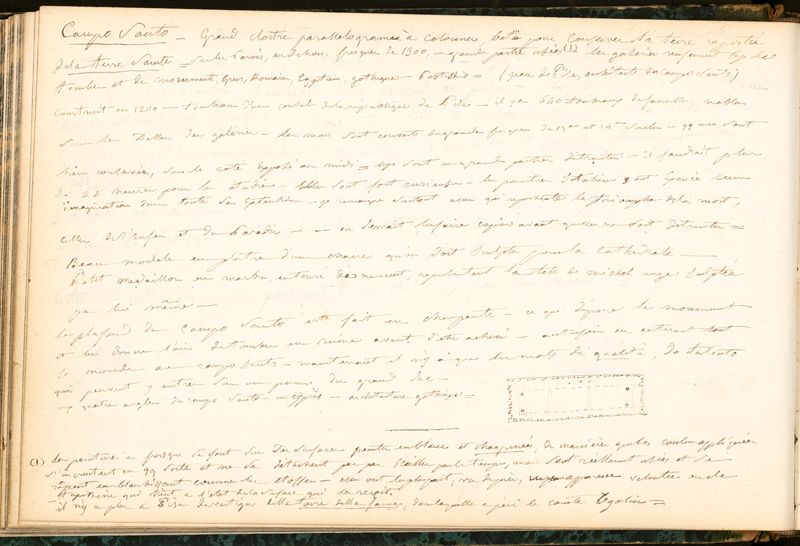 Campo Santo — Grand cloître parallélogramme à colonnes, bâti pour conserver la terre rapportée
de la terre Sainte — sur les parois, en dehors, fresques de 1300, — grande partie usées, (1) les galeries renferment de
tombes et de monuments, Grecs, Romains, Egyptiens, gothiques — Pastichio = (Jean de Pise, architecte du Campo Santo)
construit en 1200 — tombeau d'un consul de la république de Pise — il y a 640 tombeaux de familles nobles
sous les Dalles des galeries — les murs sont couverts de grandes fresques du 13me et 14me siècles — qq unes sont
bien conservées, sur le côté opposé au midi = elles sont en grande partie détruites — il faudrait plus
de 24 heures pour les étudier — elles sont fort curieuses — le peintre Italien y est laissé
l'imagination dans toute sa — je remarque surtout celles qui représente le triomphe de la mort,
celles de l'Enfer et du Paradis — on devrait les faire copier avant qu'elles ne soient détruites =
Beau modèle en plâtre d'une chaire qu'on doit sculpter pour la Cathédrale —
Petit médaillon en marbre, entouré d'ornement, représentant la tête de michel ange sculptée
par lui même —
le plafond du Campo Santo est fait en charpente — ce qui dépare le monument
et lui donne l'air de tomber en ruine avant d'être achevé — autrefois on enterrait tout
le monde au campo santo — maintenant il n'y a que les morts de qualité, de talents
qui peuvent y entrer sur un permis du grand duc —
aux quatre angles du campo santo — un cyprès — architecture gothique =
(1) les peintures à fresque se font sur des surfaces peintes en blanc et chagrinée, de manière que les couleurs appliquées
s'incrustent en qq sorte et ne se détachent pas par écailles par le temps, mais sont réellement usées et se
rapent en blanchissant comme les étoffes — elles ont la plupart, vu de près, une apparence veloutée ou de
tapisserie qui tient à l'état de la surface qui les reçoit.
il n'y a plus à Pise de vestige de la torre della fame, dans laquelle a péri le comte Ugolin =